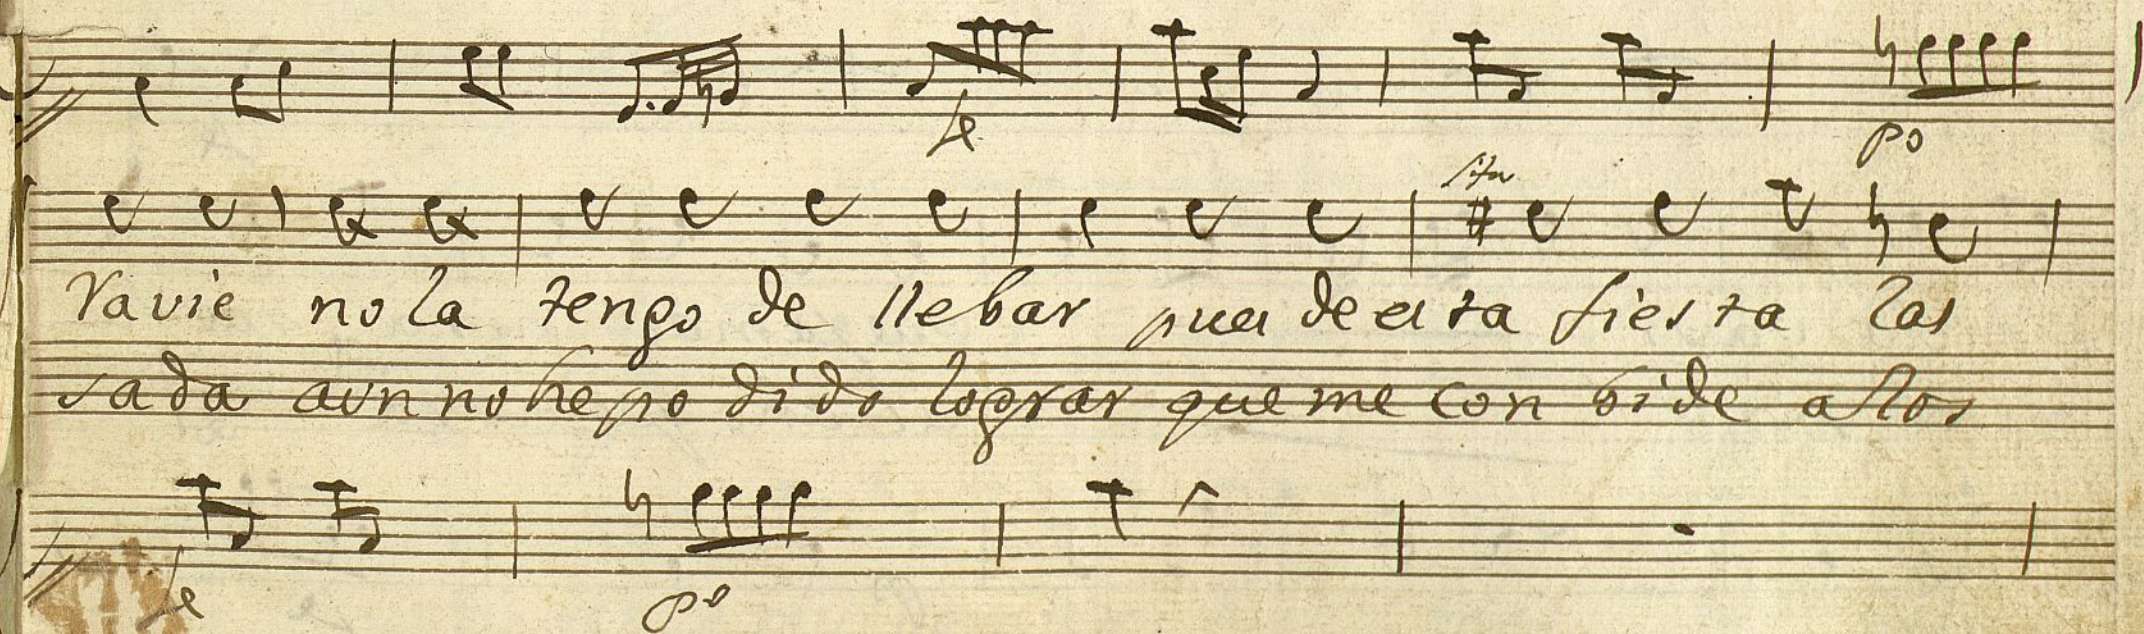 fe po
sta
Ravie no la tengo de llebar pues de esta fiesta las
sada aun no he podido lograr que me conbide a los
fe po